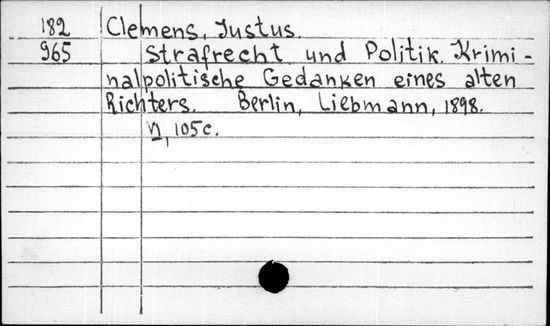 182 Clemens, Justus.
965 Strafrecht und Politik. Krimi-
nalpolitische Gedanken eines alten
Richters. Berlin, Liebmann, 1898.
VI, 105c.